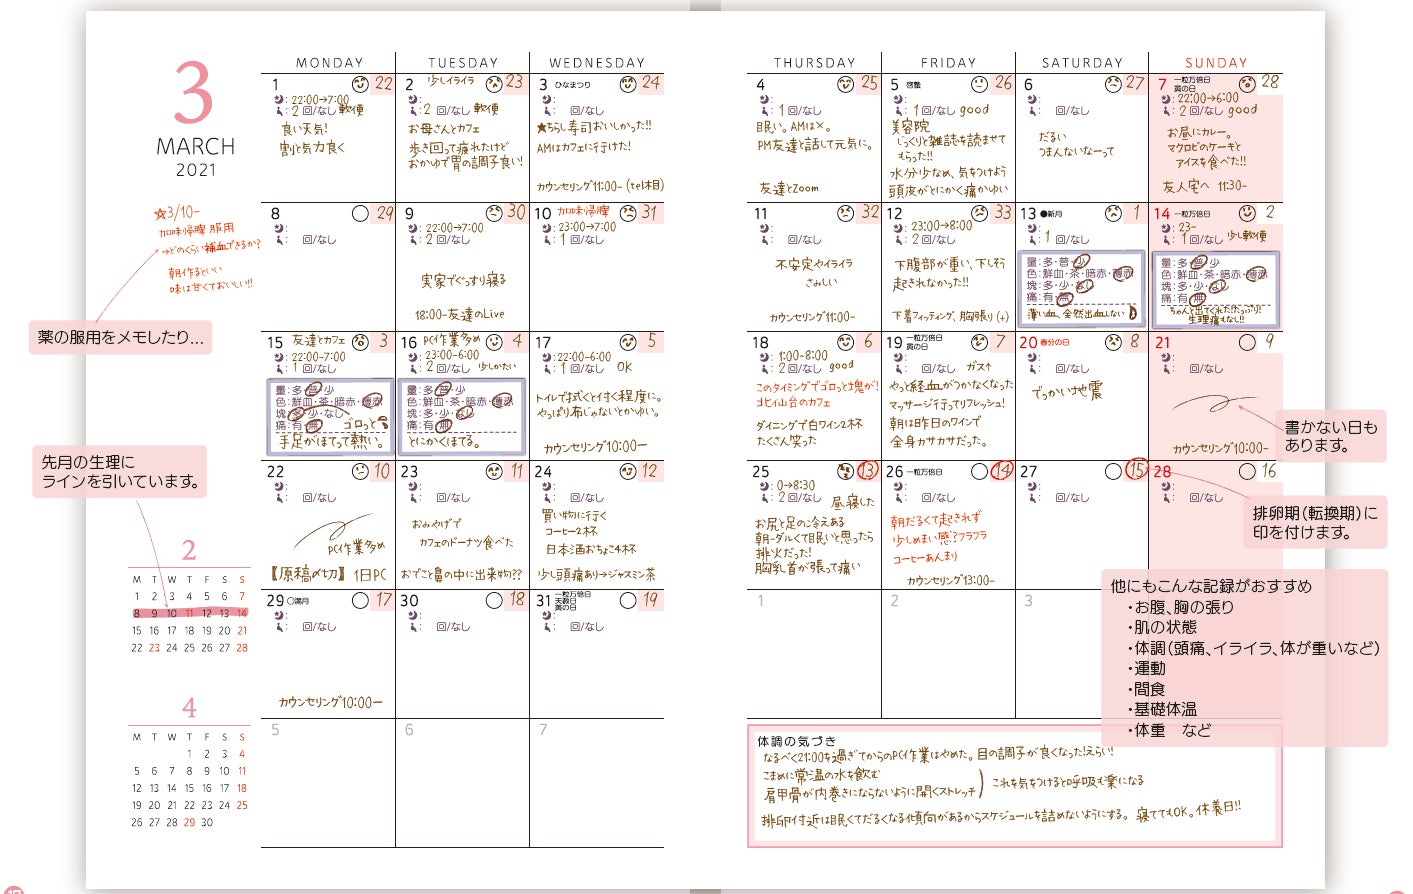 3
MARCH
2021
MONDAY TUESDAY WEDNESDAY THURSDAY FRIDAY SATURDAY SUNDAY
1 22
22:00→7:00
2 回/なし 軟便
良い天気!
割と気力良く
2 少しイライラ 23
2 回/なし 軟便
お母さんとカフェ
歩き回って疲れたけど
おかゆで胃の調子良い!
3 ひなまつり 24
回/なし
★ちらし寿司おいしかった!!
AMはカフェに行けた!
カウンセリング11:00-(tel木目)
4 25
1 回/なし
眠い。AMは×。
PM友達と話して元気に。
友達とZoom
5 啓蟄 26
1 回/なし good
美容院
じっくりと雑誌を読ませて
もらった!!
水分少なめ、気をつけよう
頭皮がとにかく痛かゆい
6 27
回/なし
だるい
つまんないなーって
7 一粒万倍日 28
寅の日
22:00→6:00
2 回/なし good
お昼にカレー。
マクロビのケーキと
アイスを食べた!!
友人宅へ 11:30-
☆3/10-
加味帰脾 服用
→どのくらい補血できるか?
朝作るといい
味は甘くておいしい!!
薬の服用をメモしたり…
8 29
回/なし
9 30
22:00→7:00
2 回/なし
実家でぐっすり寝る
18:00-友達のLive
10 加味帰脾 31
23:00→7:00
1 回/なし
11 32
回/なし
不安定やイライラ
さみしい
カウンセリング11:00-
12 33
23:00→8:00
2回/なし
下腹部が重い、下しそう
起きれなかった!!
下着フィッティング、胸張り(+)
13 ●新月 1
1 回/なし
量:多・普・少
色:鮮血・茶・暗赤・薄赤
塊:多・少・なし
痛:有・無
薄い血、全然出血しない
14 一粒万倍日 2
23-
1回/なし 少し軟便
量:多・普・少
色:鮮血・茶・暗赤・薄赤
塊:多・少・なし
痛:有・無
ちゃんと出てくれた!たっぷり!
生理痛もなし!!
15 友達とカフェ 3
22:00-7:00
1 回/なし
量:多・普・少
色:鮮血・茶・暗赤・薄赤
塊:多・少・なし
痛:有・無 ゴロっと
手足がほてって熱い。
16 PC作業多め 4
23:00-6:00
2 回/なし 少しかたい
量:多・普・少
色:鮮血・茶・暗赤・薄赤
塊:多・少・なし
痛:有・無
とにかくほてる。
17 5
22:00-6:00
1 回/なし OK
トイレで拭くとつく程度に。
やっぱり布じゃないとかゆい。
カウンセリング10:00ー
18 6
1:00-8:00
2 回/なし good
このタイミングでゴロっと塊が!
北仙台のカフェ
ダイニングで白ワイン2杯
たくさん笑った
19 一粒万倍日 7
寅の日
1 回/なし ガス↑
やっと経血がつかなくなった
マッサージ行ってリフレッシュ!
朝は昨日のワインで
全身カサカサだった。
20 春分の日 8
2 回/なし
でっかい地震
21 9
回/なし
カウンセリング10:00-
書かない日も
あります。
先月の生理に
ラインを引いています。
22 10
回/なし
PC作業多め
【原稿〆切】 1日PC
23 11
回/なし
おみやげで
カフェのドーナツ食べた
おでこと鼻の中に出来物??
24 12
回/なし
買い物に行く
コーヒー2杯
日本酒おちょこ4杯
少し頭痛あり→ジャスミン茶
25 13
0→8:30
2回/なし 昼寝した
お尻と足の冷えある
朝ーダルくて眠いと思ったら
排火だった!
胸乳首が張って痛い
26 一粒万倍日 14
回/なし
朝だるくて起きれず
少しめまい感?フラフラ
コーヒーあんまり
カウンセリング13:00-
27 15
回/なし
28 16
回/なし
排卵期(転換期)に
印を付けます。
2
M T W T F S S
1 2 3 4 5 6 7
8 9 10 11 12 13 14
15 16 17 18 19 20 21
22 23 24 25 26 27 28
29 ○満月 17
回/なし
カウンセリング10:00ー
30 18
回/なし
31 一粒万倍日 19
天赦日
寅の日
回/なし
1
2
3
他にもこんな記録がおすすめ
・お腹、胸の張り
・肌の状態
・体調(頭痛、イライラ、体が重いなど)
・運動
・間食
・基礎体温
・体重 など
4
M T W T F S S
1 2 3 4
5 6 7 8 9 10 11
12 13 14 15 16 17 18
19 20 21 22 23 24 25
26 27 28 29 30
5
6
7
体調の気づき
なるべく21:00を過ぎてからのPC作業はやめた。目の調子が良くなった!えらい!
こまめに常温の水を飲む
肩甲骨が内巻きにならないように開くストレッチ
これを気をつけると呼吸も楽になる
排卵付近は眠くてだるくなる傾向があるからスケジュールを詰めないようにする。寝ててもOK。休養日!!